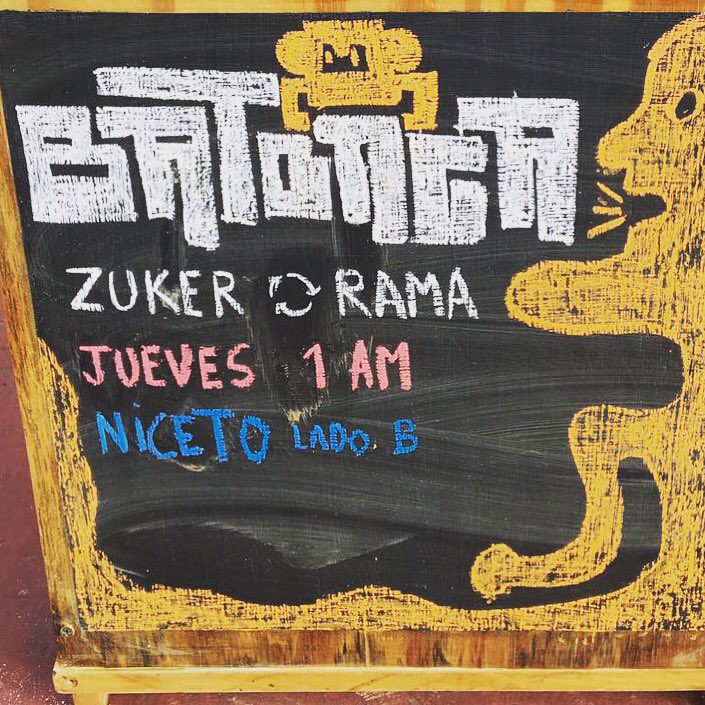 BATONGA
ZUKER O RAMA
JUEVES 1 AM
NICETO LADO B